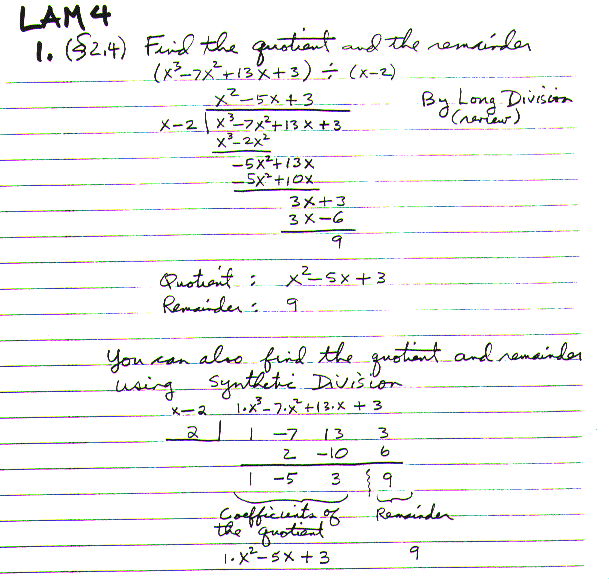 LAM 4
1. (§2.4) Find the quotient and the remainder
(x³-7x²+13x+3) ÷ (x-2)
x²-5x+3
By Long Division
(review)
x-2 | x³-7x²+13x+3
x³-2x²
-5x²+13x
-5x²+10x
3x+3
3x-6
9
Quotient : x²-5x+3
Remainder : 9
You can also find the quotient and remainder
using Synthetic Division
x-2 1·x³-7·x²+13·x+3
2 | 1 -7 13 3
2 -10 6
1 -5 3 9
Coefficients of Remainder
the quotient
1·x²-5x+3 9